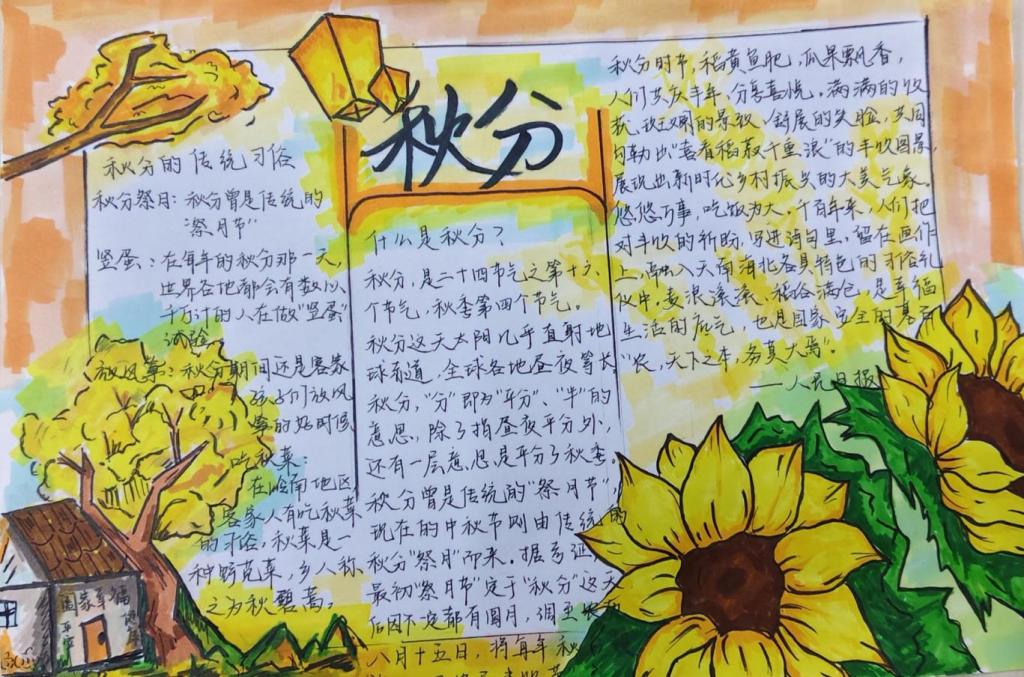 秋分
秋分的传统习俗
秋分祭月：秋分曾是传统的
"祭月节"
竖蛋：在每年的秋分那一天，
世界各地都会有数以
千万计的人在做"竖蛋"
试验。
放风筝：秋分期间还是
孩子们放风
筝的好时候
吃秋菜：
在岭南地区
客家人有吃秋菜
的习俗，秋菜是一
种野苋菜，乡人称
之为秋碧蒿。
阖家幸福
平安
什么是秋分？
秋分，是二十四节气之第十六
个节气，秋季第四个节气。
秋分这天太阳几乎直射地
球赤道，全球各地昼夜等长
秋分，"分"即为"平分"、"半"的
意思，除了指昼夜平分外，
还有一层意思是平分了秋季。
秋分曾是传统的"祭月节"，
现在的中秋节则由传统的
秋分"祭月"而来。据考证
最初"祭月节"定于"秋分"这天
后因不一定都有圆月，调至农
八月十五日，将每年秋
秋分时节，稻黄鱼肥，瓜果飘香，
人们共庆丰年、分享喜悦。满满的收
获、的景致、舒展的笑脸，共同
勾勒出"喜看稻菽千重浪"的丰收图景，
展现出新时代乡村振兴的大美气象。
悠悠万事，吃饭为大。千百年来，人们把
对丰收的祈盼，写进诗句里，留在画作
上，融入天南海北各具特色的习俗礼
仪中。麦浪滚滚、稻谷满仓，是幸福
生活的底气，也是国家安全的基石
"农，天下之本，务莫大焉"。
——人民日报